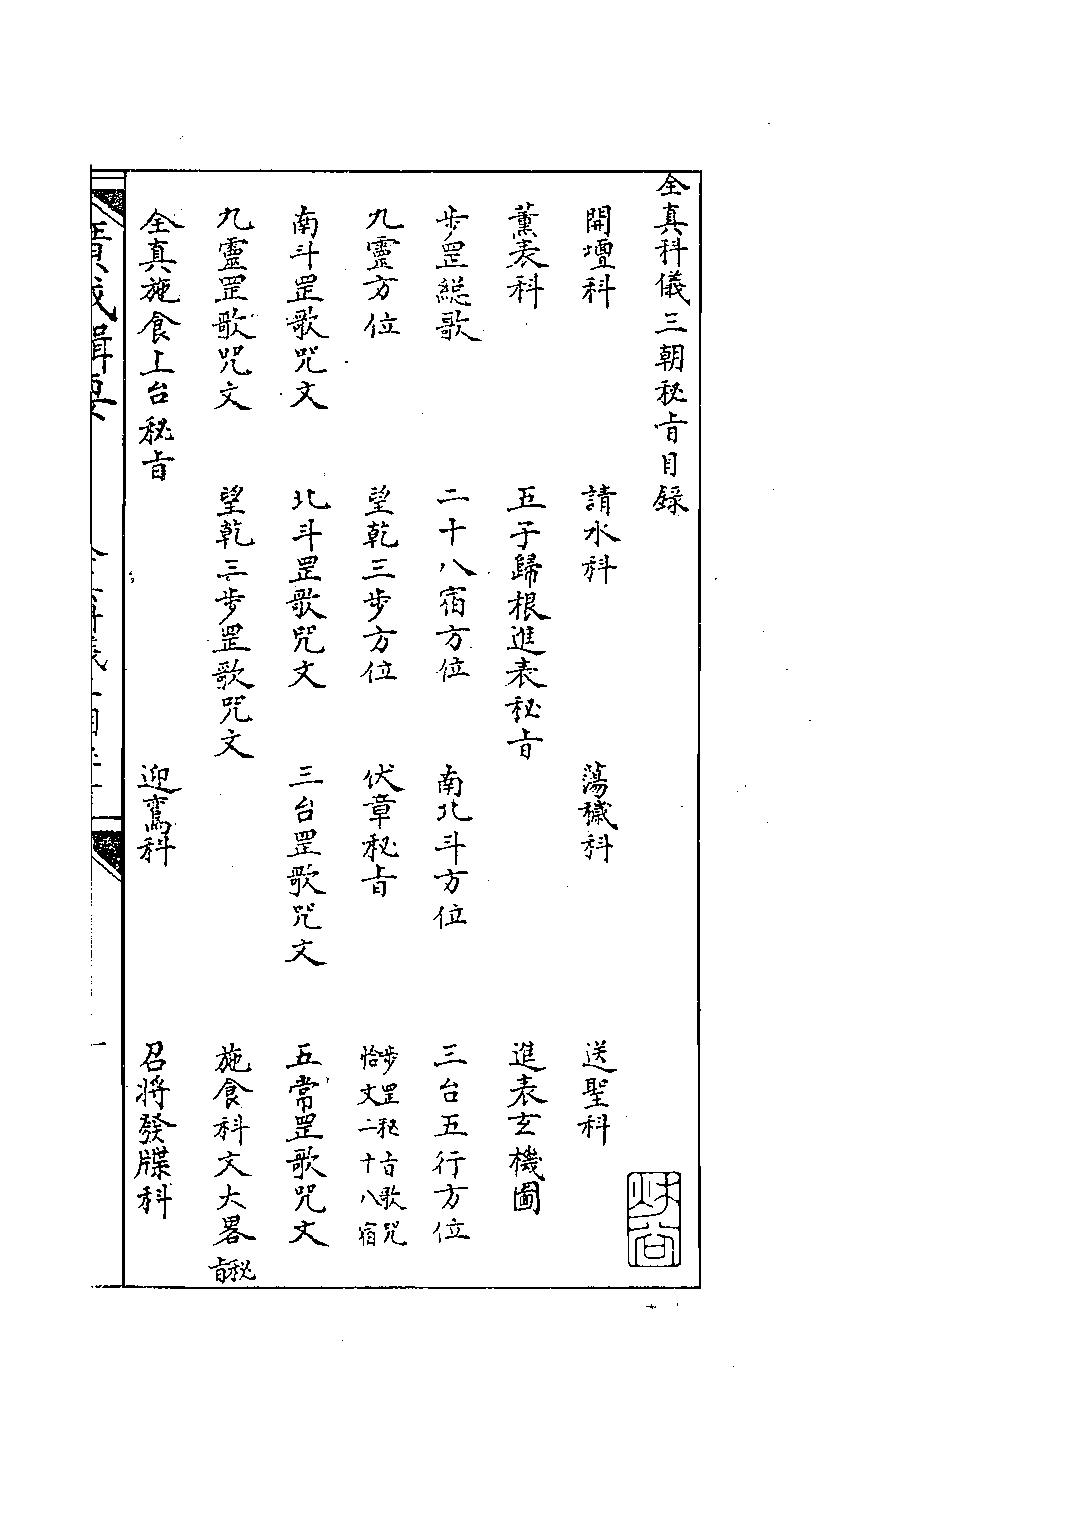 全真科儀三朝秘旨目錄
開壇科 請水科 蕩穢科 送聖科
薰表科 五子歸根進表秘旨 進表玄機圖
步罡総歌 二十八宿方位 南北斗方位 三台五行方位
九靈方位 望乾三步方位 伏章秘旨 步罡秘旨歌咒恰文二十八宿
南斗罡歌咒文 北斗罡歌咒文 三台罡歌咒文 五常罡歌咒文
九靈罡歌咒文 望乾三步罡歌咒文 施食科文大畧秘旨
全真施食上台秘旨 迎鸞科 召将發牒科